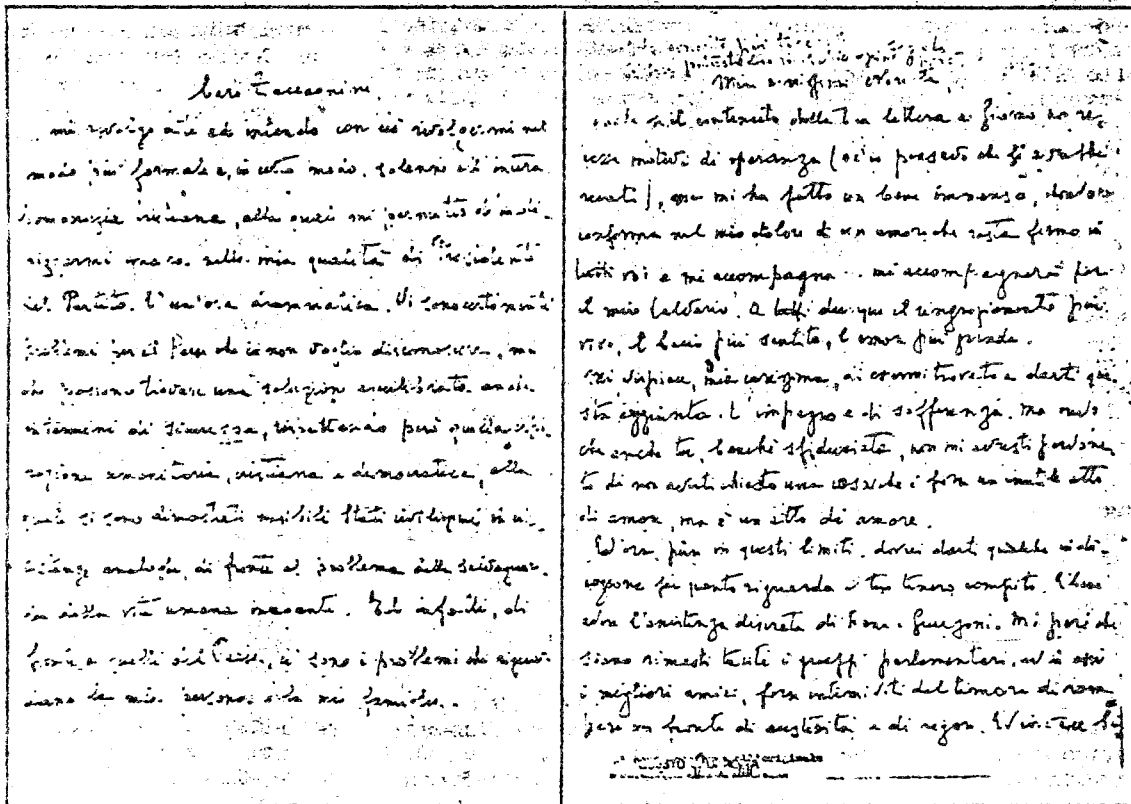 Caro Zaccagnini,
mi rivolgo a te ed intendo con ciò rivolgermi nel
modo più formale e, in certo modo, solenne all'intera
Democrazia Cristiana, alla quale mi permetto di indi-
rizzarmi ancora nella mia qualità di Presidente
del Partito. È un'ora drammatica. Vi sono certamente
problemi per il Paese che io non voglio disconoscere, ma
che possono trovare una soluzione equilibrata anche
in termini di sicurezza, rispettando però quella ispi-
razione umanitaria, cristiana e democratica, alla
quale si sono dimostrati sensibili Stati civilissimi in cir-
costanze analoghe, di fronte al problema della salvaguar-
dia della vita umana innocente. Ed infatti, di
fronte a quelli del Paese, ci sono i problemi che riguar-
dano la mia persona e la mia famiglia.
Mia carissima Noretta,
anche se il contenuto della tua lettera a Giorno non re-
casse motivi di speranza (né io pensavo che li avrebbe
recati), essa mi ha fatto un bene immenso, dandomi
conferma nel mio dolore di un amore che resta fermo in
tutti voi e mi accompagna e mi accompagnerà per
il mio Calvario. A tutti dunque il ringraziamento più
vivo, il bacio più sentito, l'amore più grande.
Mi dispiace, mia carissima, di essermi trovato a darti que-
sta aggiunta di impegno e di sofferenza. Ma credo
che anche tu, benché sfiduciata, non mi avresti perdona-
to di non averti chiesto una cosa che è forse un inutile atto
di amore, ma è un atto di amore.
Ed ora, pur in questi limiti, dovrei darti qualche indi-
cazione per quanto riguarda il tuo tenero compito. È bene
avere l'assistenza discreta di Rana e Guerzoni. Mi pare che
siano rimasti taciti i gruppi parlamentari, ed in essi
i migliori amici, forse intimiditi dal timore di rom-
pere un fronte di austerità e di rigore.